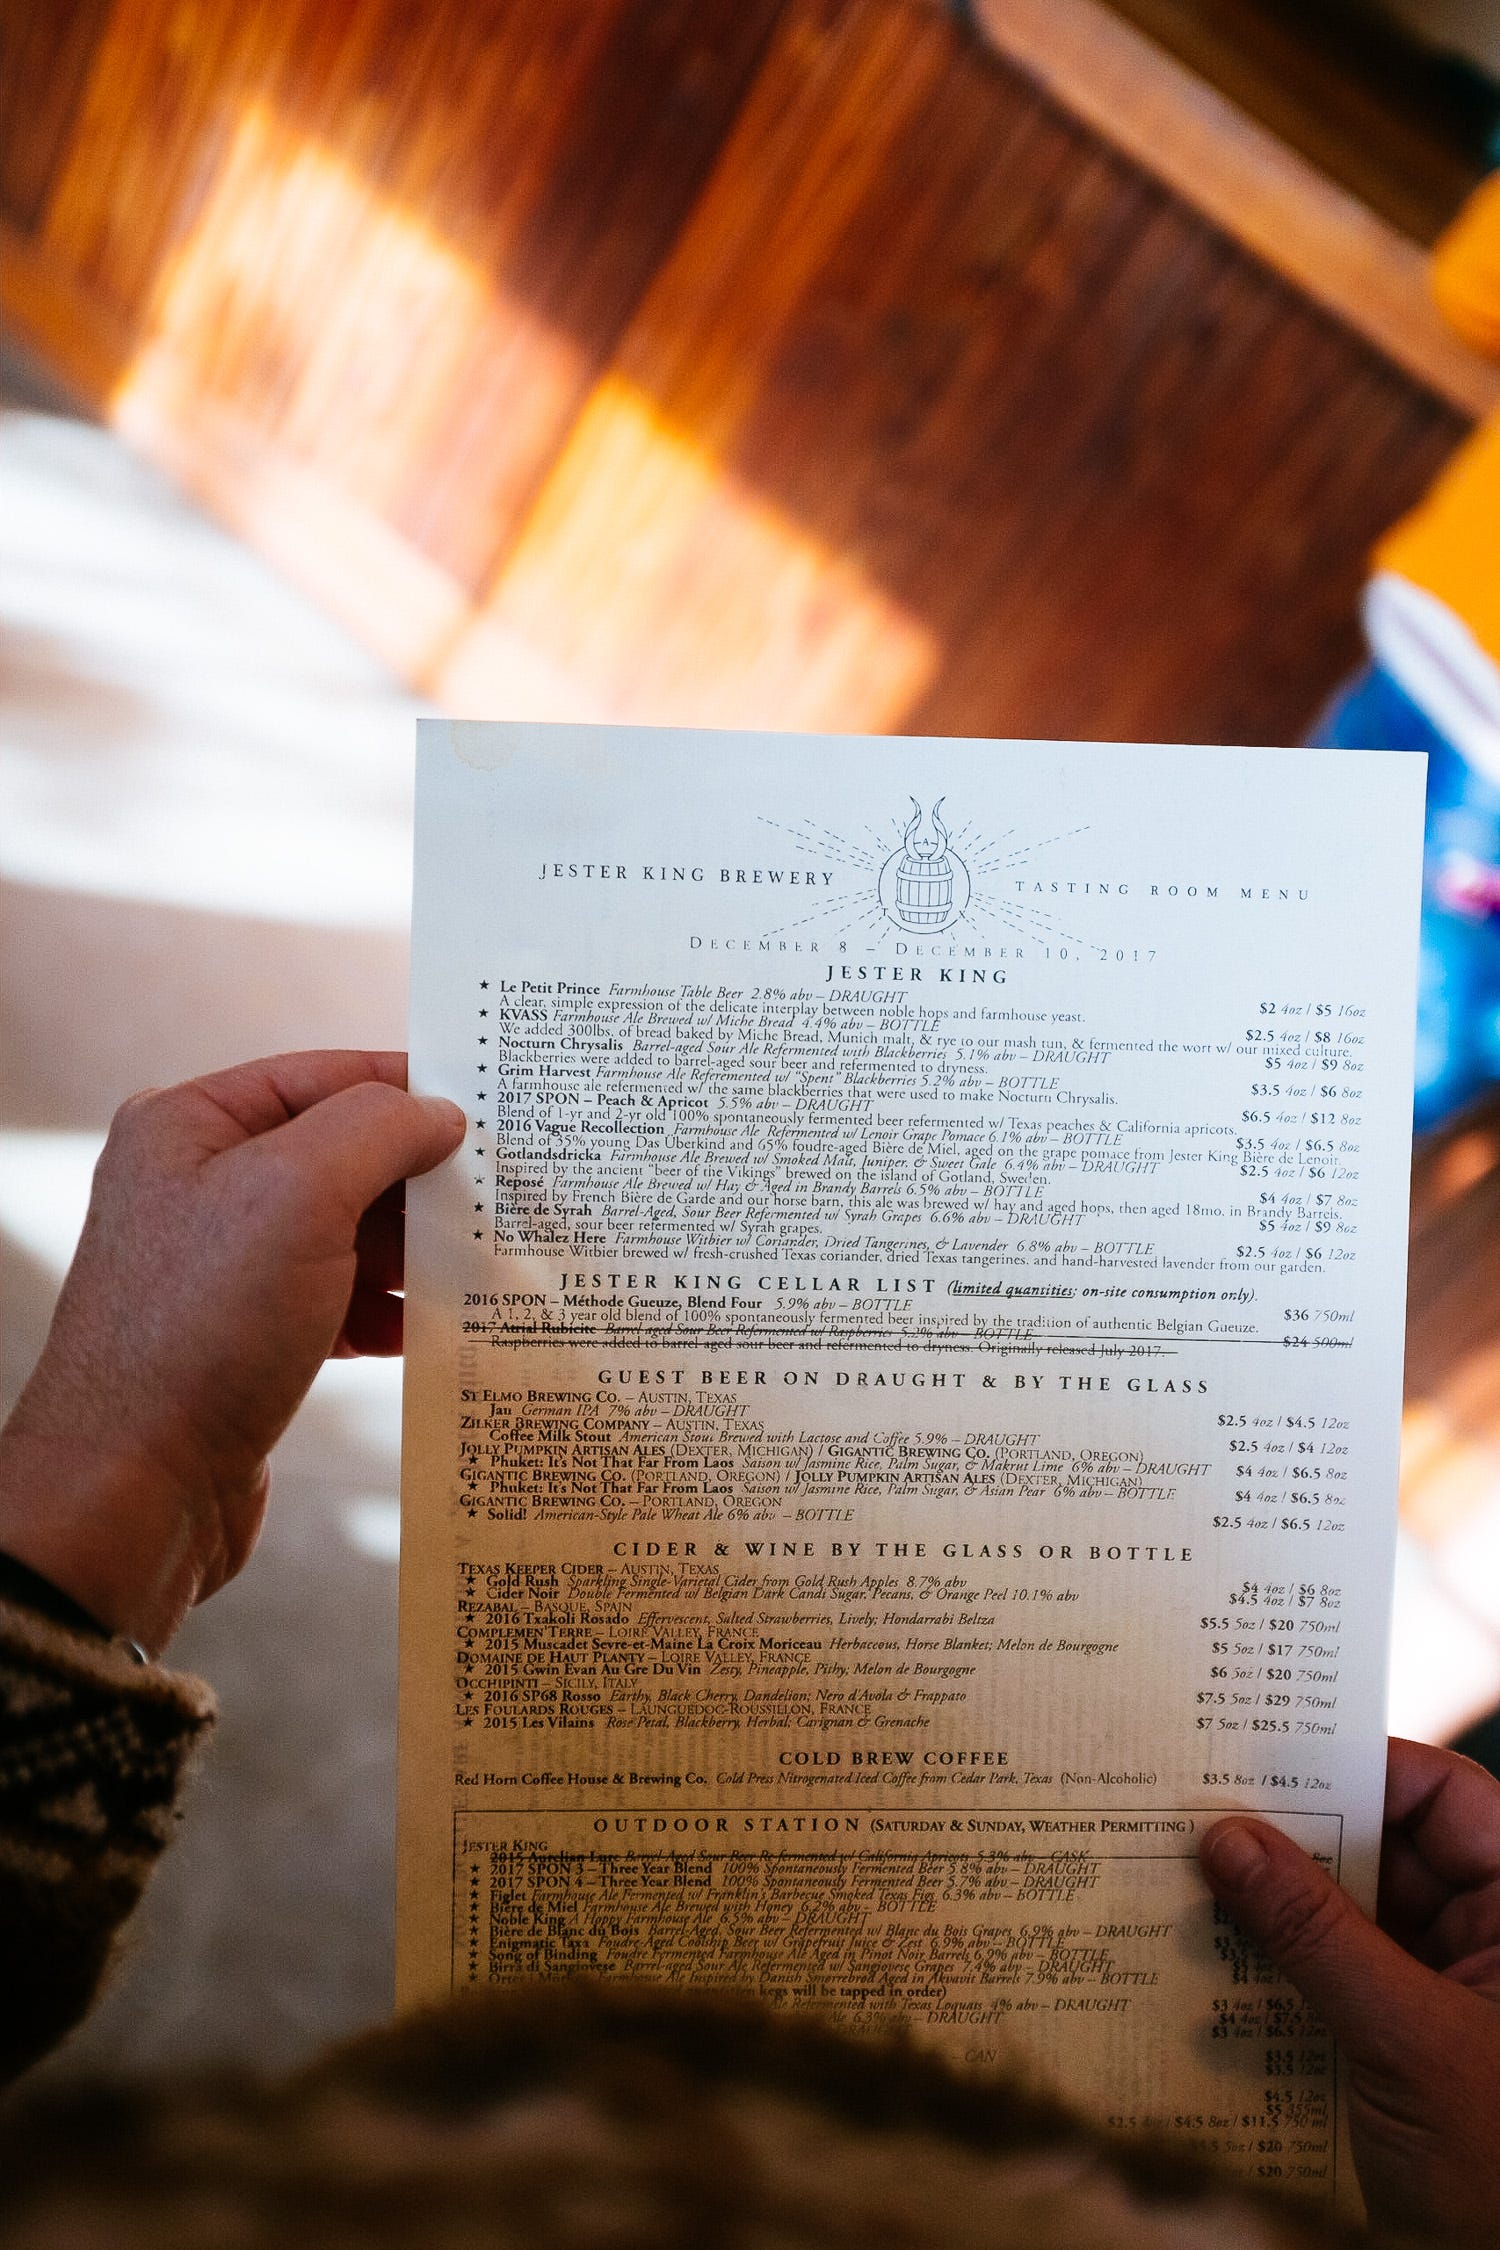 JESTER KING BREWERY
A
T X
TASTING ROOM MENU
DECEMBER 8 – DECEMBER 10, 2017
JESTER KING
★ Le Petit Prince Farmhouse Table Beer 2.8% abv – DRAUGHT
A clear, simple expression of the delicate interplay between noble hops and farmhouse yeast. $2 4oz / $5 16oz
★ KVASS Farmhouse Ale Brewed w/ Miche Bread 4.4% abv – BOTTLE
We added 300lbs. of bread baked by Miche Bread, Munich malt, & rye to our mash tun, & fermented the wort w/ our mixed culture. $2.5 4oz / $8 16oz
★ Nocturn Chrysalis Barrel-aged Sour Ale Refermented with Blackberries 5.1% abv – DRAUGHT
Blackberries were added to barrel-aged sour beer and refermented to dryness. $5 4oz / $9 8oz
★ Grim Harvest Farmhouse Ale Referemented w/ "Spent" Blackberries 5.2% abv – BOTTLE
A farmhouse ale refermented w/ the same blackberries that were used to make Nocturn Chrysalis. $3.5 4oz / $6 8oz
★ 2017 SPON – Peach & Apricot 5.5% abv – DRAUGHT
Blend of 1-yr and 2-yr old 100% spontaneously fermented beer refermented w/ Texas peaches & California apricots. $6.5 4oz / $12 8oz
★ 2016 Vague Recollection Farmhouse Ale Refermented w/ Lenoir Grape Pomace 6.1% abv – BOTTLE
Blend of 35% young Das Uberkind and 65% foudre-aged Bière de Miel, aged on the grape pomace from Jester King Bière de Lenoir. $3.5 4oz / $6.5 8oz
★ Gotlandsdricka Farmhouse Ale Brewed w/ Smoked Malt, Juniper, & Sweet Gale 6.4% abv – DRAUGHT
Inspired by the ancient "beer of the Vikings" brewed on the island of Gotland, Sweden. $2.5 4oz / $6 12oz
★ Reposé Farmhouse Ale Brewed w/ Hay & Aged in Brandy Barrels 6.5% abv – BOTTLE
Inspired by French Bière de Garde and our horse barn, this ale was brewed w/ hay and aged hops, then aged 18mo. in Brandy Barrels. $4 4oz / $7 8oz
★ Bière de Syrah Barrel-Aged, Sour Beer Refermented w/ Syrah Grapes 6.6% abv – DRAUGHT
Barrel-aged, sour beer refermented w/ Syrah grapes. $5 4oz / $9 8oz
★ No Whalez Here Farmhouse Witbier w/ Coriander, Dried Tangerines, & Lavender 6.8% abv – BOTTLE
Farmhouse Witbier brewed w/ fresh-crushed Texas coriander, dried Texas tangerines, and hand-harvested lavender from our garden. $2.5 4oz / $6 12oz
JESTER KING CELLAR LIST (limited quantities; on-site consumption only).
2016 SPON – Méthode Gueuze, Blend Four 5.9% abv – BOTTLE
A 1, 2, & 3 year old blend of 100% spontaneously fermented beer inspired by the tradition of authentic Belgian Gueuze. $36 750ml
2017 Atrial Rubicite Barrel-aged Sour Beer Refermented w/ Raspberries 5.2% abv – BOTTLE
Raspberries were added to barrel-aged sour beer and refermented to dryness. Originally released July 2017. $24 500ml
GUEST BEER ON DRAUGHT & BY THE GLASS
ST ELMO BREWING CO. – AUSTIN, TEXAS
Jan German IPA 7% abv – DRAUGHT $2.5 4oz / $4.5 12oz
ZILKER BREWING COMPANY – AUSTIN, TEXAS
Coffee Milk Stout American Stout Brewed with Lactose and Coffee 5.9% – DRAUGHT $2.5 4oz / $4 12oz
JOLLY PUMPKIN ARTISAN ALES (DEXTER, MICHIGAN) / GIGANTIC BREWING CO. (PORTLAND, OREGON)
★ Phuket: It's Not That Far From Laos Saison w/ Jasmine Rice, Palm Sugar, & Makrut Lime 6% abv – DRAUGHT $4 4oz / $6.5 8oz
GIGANTIC BREWING CO. (PORTLAND, OREGON) / JOLLY PUMPKIN ARTISAN ALES (DEXTER, MICHIGAN)
★ Phuket: It's Not That Far From Laos Saison w/ Jasmine Rice, Palm Sugar, & Asian Pear 6% abv – BOTTLE $4 4oz / $6.5 8oz
GIGANTIC BREWING CO. – PORTLAND, OREGON
★ Solid! American-Style Pale Wheat Ale 6% abv – BOTTLE $2.5 4oz / $6.5 12oz
CIDER & WINE BY THE GLASS OR BOTTLE
TEXAS KEEPER CIDER – AUSTIN, TEXAS
★ Gold Rush Sparkling Single-Varietal Cider from Gold Rush Apples 8.7% abv $4 4oz / $6 8oz
★ Cider Noir Double Fermented w/ Belgian Dark Candi Sugar, Pecans, & Orange Peel 10.1% abv $4.5 4oz / $7 8oz
REZABAL – BASQUE, SPAIN
★ 2016 Txakoli Rosado Effervescent, Salted Strawberries, Lively; Hondarrabi Beltza $5.5 5oz / $20 750ml
COMPLEMEN'TERRE – LOIRE VALLEY, FRANCE
★ 2015 Muscadet Sevre-et-Maine La Croix Moriceau Herbaceous, Horse Blanket; Melon de Bourgogne $5 5oz / $17 750ml
DOMAINE DE HAUT PLANTY – LOIRE VALLEY, FRANCE
★ 2015 Gwin Evan Au Gre Du Vin Zesty, Pineapple, Pithy; Melon de Bourgogne $6 5oz / $20 750ml
OCCHIPINTI – SICILY, ITALY
★ 2016 SP68 Rosso Earthy, Black Cherry, Dandelion; Nero d'Avola & Frappato $7.5 5oz / $29 750ml
LES FOULARDS ROUGES – LAUNGUEDOC-ROUSSILLON, FRANCE
★ 2015 Les Vilains Rose Petal, Blackberry, Herbal; Carignan & Grenache $7 5oz / $25.5 750ml
COLD BREW COFFEE
Red Horn Coffee House & Brewing Co. Cold Press Nitrogenated Iced Coffee from Cedar Park, Texas (Non-Alcoholic) $3.5 8oz / $4.5 12oz
OUTDOOR STATION (SATURDAY & SUNDAY, WEATHER PERMITTING)
JESTER KING
2015 Aurelian Lure Barrel-Aged Sour Beer Re-fermented w/ California Apricots 5.3% abv – CASK 8oz
★ 2017 SPON 3 – Three Year Blend 100% Spontaneously Fermented Beer 5.8% abv – DRAUGHT
★ 2017 SPON 4 – Three Year Blend 100% Spontaneously Fermented Beer 5.7% abv – DRAUGHT
★ Figlet Farmhouse Ale Fermented w/ Franklin's Barbecue Smoked Texas Figs 6.3% abv – BOTTLE
★ Bière de Miel Farmhouse Ale Brewed with Honey 6.2% abv – BOTTLE
★ Noble King A Hoppy Farmhouse Ale 6.5% abv – DRAUGHT
★ Bière de Blanc du Bois Barrel-Aged, Sour Beer Refermented w/ Blanc du Bois Grapes 6.9% abv – DRAUGHT
★ Enigmatic Taxa Foudre-Aged Coolship Beer w/ Grapefruit Juice & Zest 6.9% abv – BOTTLE
★ Song of Binding Foudre Fermented Farmhouse Ale Aged in Pinot Noir Barrels 6.9% abv – BOTTLE
★ Birra di Sangiovese Barrel-aged Sour Ale Refermented w/ Sangiovese Grapes 7.4% abv – DRAUGHT
★ Farmhouse Ale Inspired by Danish Smørrebrød Aged in Akvavit Barrels 7.9% abv – BOTTLE
kegs will be tapped in order)
Ale Refermented with Texas Loquats 4% abv – DRAUGHT $3 4oz / $6.5
Ale 6.3% abv – DRAUGHT $4 4oz / $7.5
$3 4oz / $6.5 12oz
– CAN $3.5 12oz
$3.5 12oz
$4.5 12oz
$5 355ml
$2.5 / $4.5 8oz / $11.5 750 ml
5oz / $20 750ml
/ $20 750ml